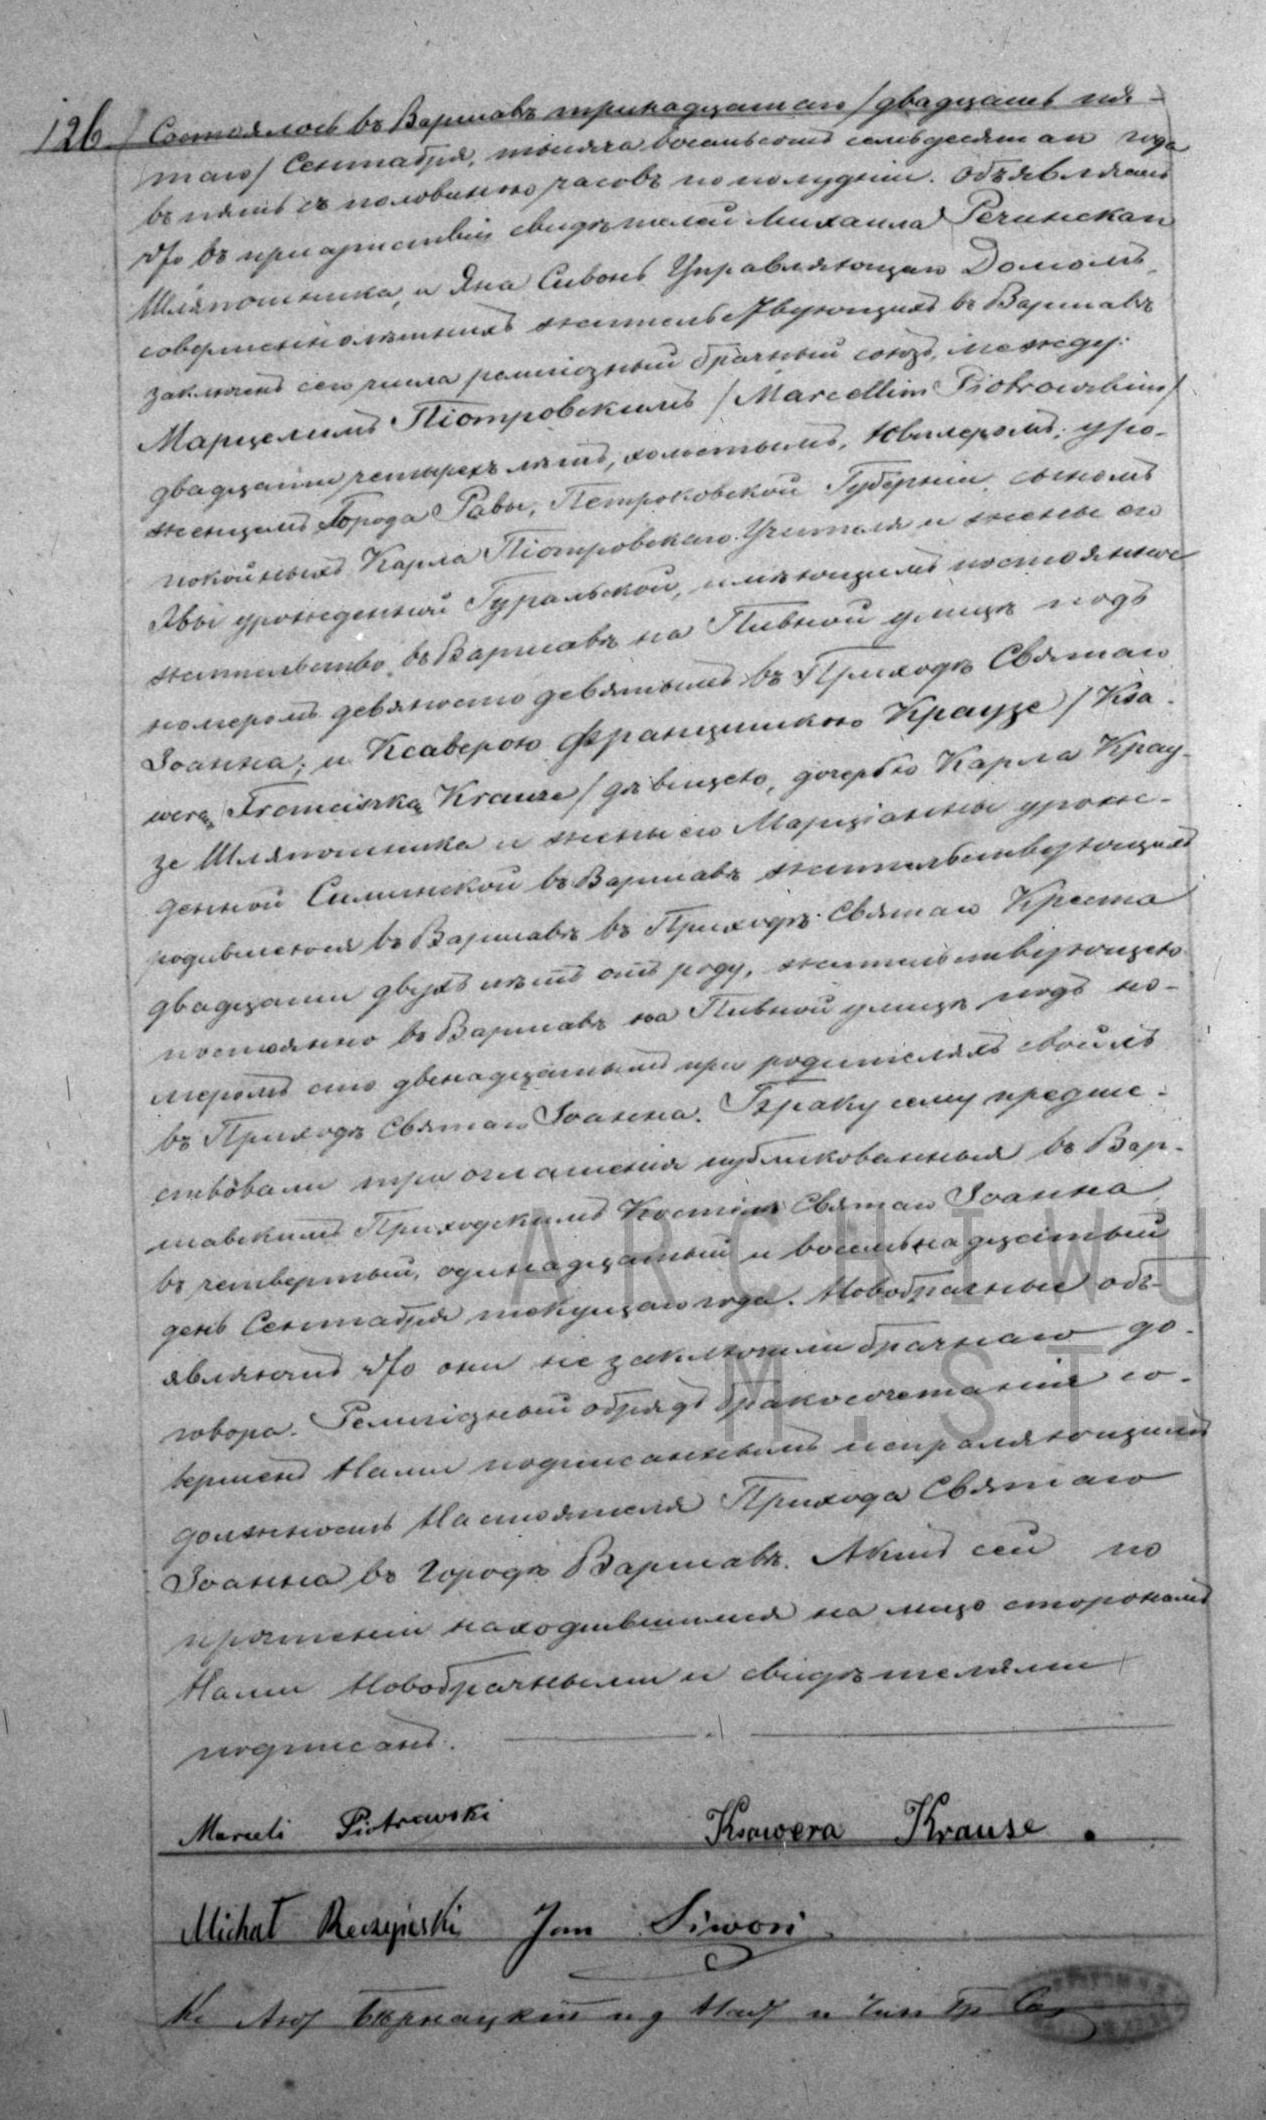 126 Состоялось въ Варшавѣ тринадцатаго /двадцать пя-
таго/ Сентября, тысяча восемьсотъ семьдесятаго года
въ пять съ половиною часовъ по полудни. Объявляемъ
что въ присутствіи свидѣтелей Михаила Речинскаго
Шляпошника, и Яна Сивонь Управляющаго Домомъ,
совершеннолѣтнихъ жительствующихъ въ Варшавѣ
заключенъ сего числа религіозный брачный союзъ, между:
Марцелимъ Піотровскимъ /Marcellim Piotrowskim/
двадцати четырехъ лѣтъ, холостымъ, Ювилеромъ, уро-
женцемъ Города Равы, Петроковской Губерніи, сыномъ
покойныхъ Карла Піотровскаго Учителя и жены его
Евы урожденной Гуральской, имѣющимъ постоянное
жительство въ Варшавѣ на Пивной улицѣ подъ
номеромъ девяносто девятымъ въ Приходѣ Святаго
Іоанна; и Ксаверою Францишкою Краузе /Ksa-
werą Franciszką Krauze/ дѣвицею, дочерью Карла Крау-
зе Шляпошника и жены его Марціанны урож-
денной Силинской въ Варшавѣ жительствующихъ
родившеюся въ Варшавѣ въ Приходѣ Святаго Креста
двадцати двухъ лѣтъ отъ роду, жительствующею
постоянно въ Варшавѣ на Пивной улицѣ подъ но-
меромъ сто двенадцатымъ при родителяхъ своихъ
въ Приходѣ Святаго Іоанна. Браку сему предше-
ствовали три оглашенія публикованныя въ Вар-
шавскимъ Приходскимъ Костёлѣ Святаго Іоанна
въ четвертый, одинадцатый и восемьнадцатый
день Сентября текущаго года. Новобрачные объ-
являютъ что они не заключили брачнаго до-
говора. Религіозный обрядъ бракосочетанія со-
вершенъ Нами подписаннымъ исправляющимъ
должность Настоятеля Прихода Святаго
Іоанна въ Городѣ Варшавѣ. Актъ сей по
прочтеніи находившимися на лицо сторонамъ
Нами Новобрачными и свидѣтелями
подписанъ.
Marceli Piotrowski Ksawera Krause.
Michał Reczyński Jan Siwoń
Кс Бернацкій и д Наст и Чин Гр Со
ARCHIWU
M. ST.